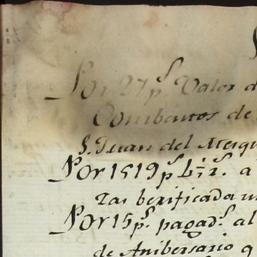 Por 27 p.s Valor d
Conventos de
S. Juan del Mesq
Por 1519 p.s 4 r.s a
tas berificada
Por 15 p.s pagad.s al
de Anibersario q